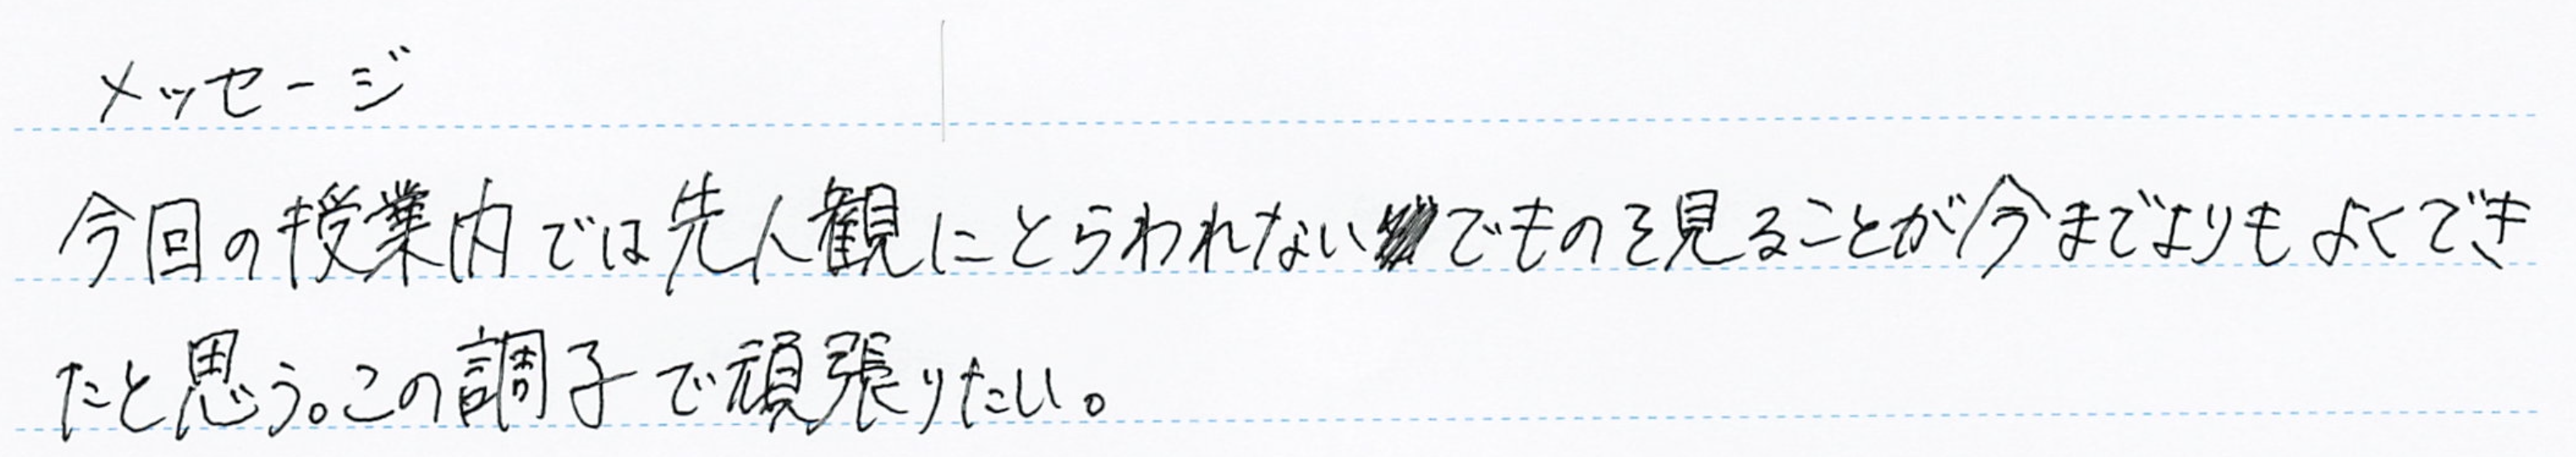 メッセージ
今回の授業内では先人観にとらわれないでものを見ることが今までよりもよくでき
たと思う。この調子で頑張りたい。